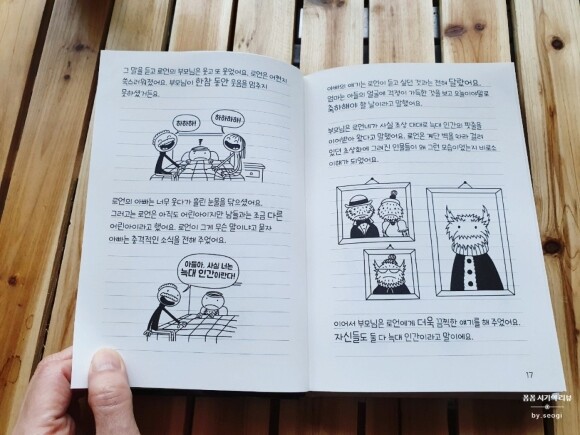 그 말을 듣고 로언의 부모님은 웃고 또 웃었어요. 로언은 어쩐지
쑥스러워졌어요. 부모님이 한참 동안 웃음을 멈추지
못하셨거든요.
하하하!
하하하하!
로언의 아빠는 너무 웃다가 흘린 눈물을 닦으셨어요.
그러고는 로언은 아직도 어린아이지만 남들과는 조금 다른
어린아이라고 했어요. 로언이 그게 무슨 말이냐고 묻자
아빠는 충격적인 소식을 전해 주었어요.
아들아, 사실 너는
늑대 인간이란다!
아빠의 얘기는 로언이 듣고 싶던 것과는 전혀 달랐어요.
엄마는 아들의 얼굴에 걱정이 가득한 것을 보고 오늘이야말로
축하해야 할 날이라고 말했어요.
부모님은 로언네가 사실 조상 대대로 늑대 인간의 핏줄을
이어받아 왔다고 말했어요. 로언은 계단 벽을 따라 걸려
있던 초상화에 그려진 인물들이 왜 그런 모습이었는지 비로소
이해가 되었어요.
이어서 부모님은 로언에게 더욱 끔찍한 얘기를 해 주었어요.
자신들도 둘 다 늑대 인간이라고 말이에요.
17
꼼꼼 서기의 리뷰
by.seogi